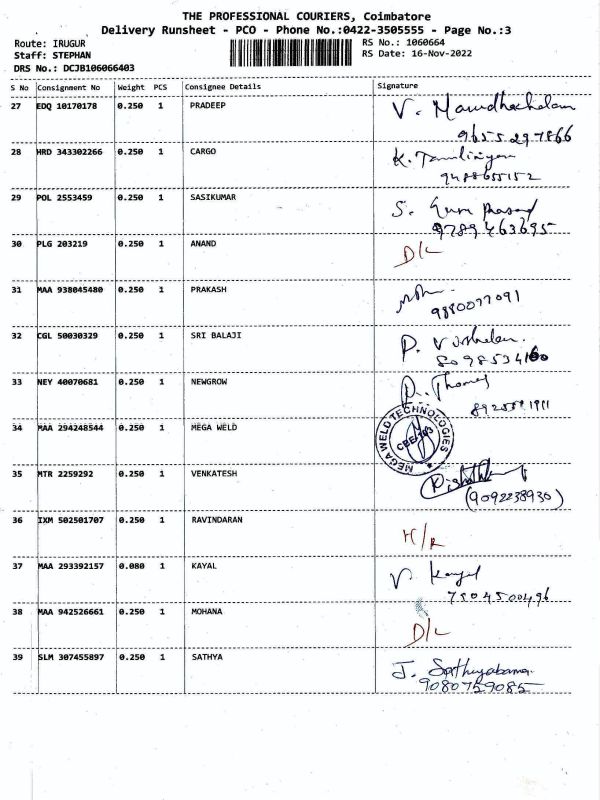 THE PROFESSIONAL COURIERS, Coimbatore
Delivery Runsheet - PCO - Phone No.:0422-3505555 - Page No.:3
Route: IRUGUR
RS No.: 1060664
Staff: STEPHAN
RS Date: 16-Nov-2022
DRS No.: DCJB106066403
S No Consignment No Weight PCS Consignee Details Signature
27 EDQ 10170178 0.250 1 PRADEEP V.
9655297866
28 HRD 343302266 0.250 1 CARGO K.
9488655152
29 POL 2553459 0.250 1 SASIKUMAR S. Guru Prasad
9789463695
30 PLG 203219 0.250 1 ANAND D/L
31 MAA 938045480 0.250 1 PRAKASH
9880077091
32 CGL 50030329 0.250 1 SRI BALAJI P.
33 NEY 40070681 0.250 1 NEWGROW
34 MAA 294248544 0.250 1 MEGA WELD MEGA WELD TECHNOLOGIES
35 MTR 2259292 0.250 1 VENKATESH
(9092238930)
36 IXM 502501707 0.250 1 RAVINDARAN
37 MAA 293392157 0.080 1 KAYAL V. Kayal
7504500496
38 MAA 942526661 0.250 1 MOHANA D/L
39 SLM 307455897 0.250 1 SATHYA J. Sathyabama.
9080759085